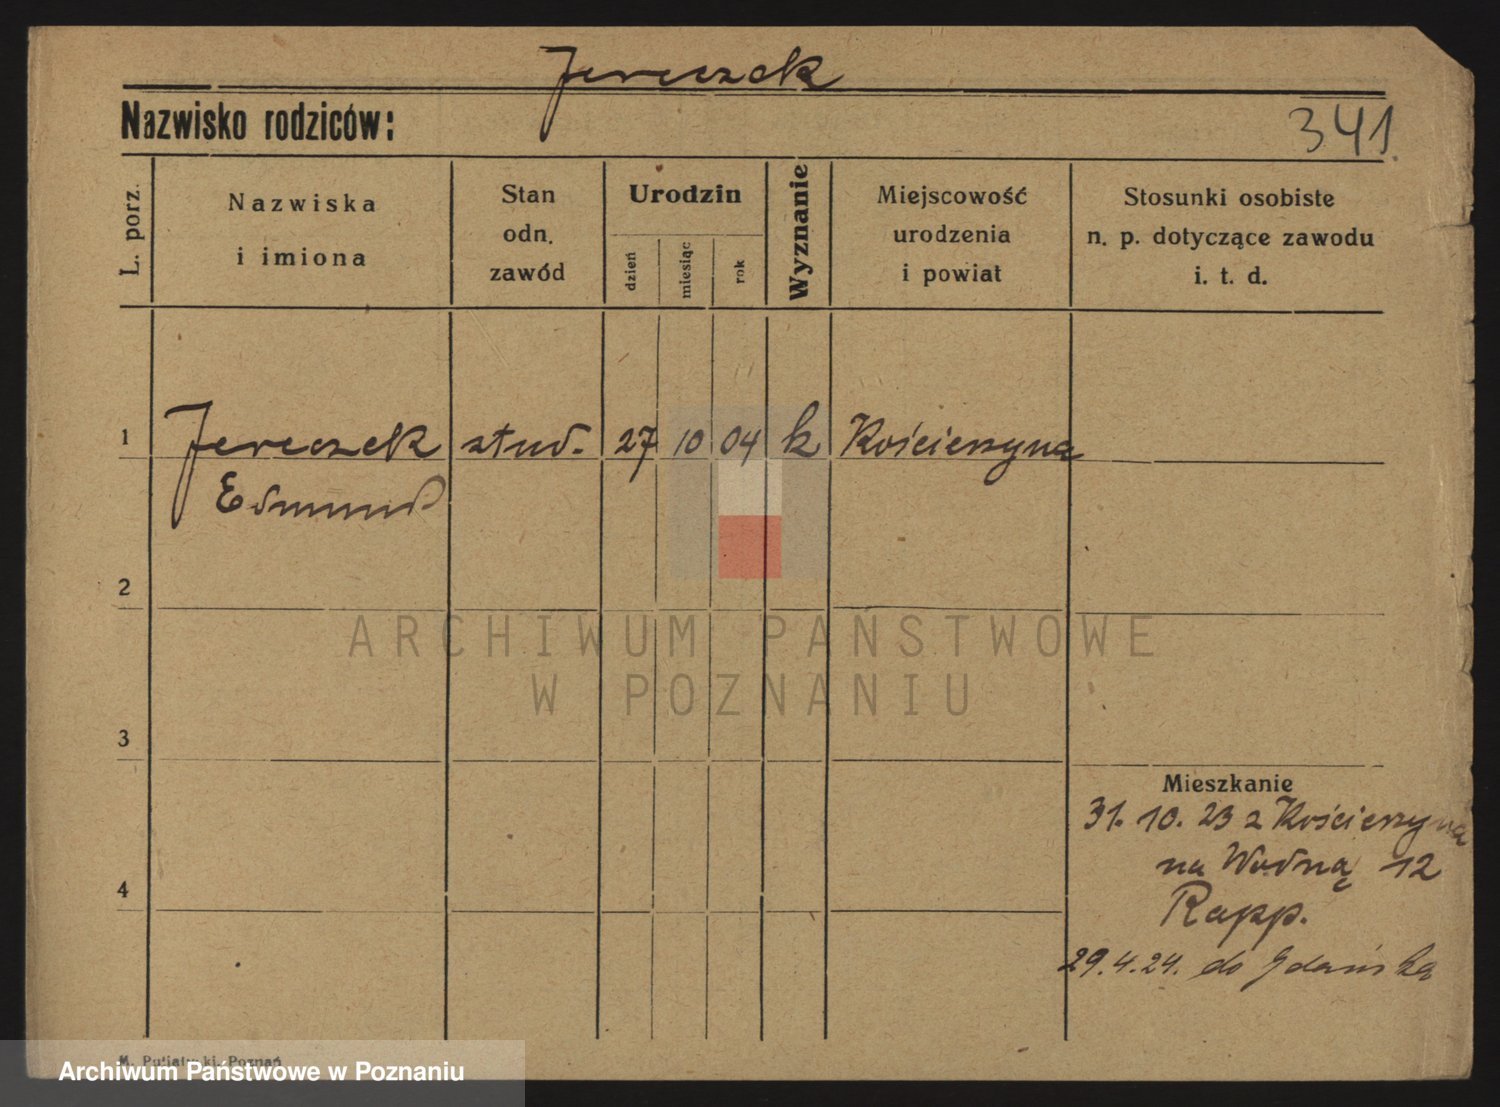 Jereczek
Nazwisko rodziców:
341.
L. porz.
Nazwiska
i imiona
Stan
odn.
zawód
Urodzin
dzień
miesiąc
rok
Wyznanie
Miejscowość
urodzenia
i powiat
Stosunki osobiste
n. p. dotyczące zawodu
i. t. d.
1 Jereczek stud. 27 10 04 k Kościerzyna
Edmund
2
ARCHIWUM PAŃSTWOWE
W POZNANIU
3
Mieszkanie
31. 10. 23 z Kościerzyna
na Wodną 12
4
Rapp.
29.4.24. do Gdańska
Poznań
Archiwum Państwowe w Poznaniu